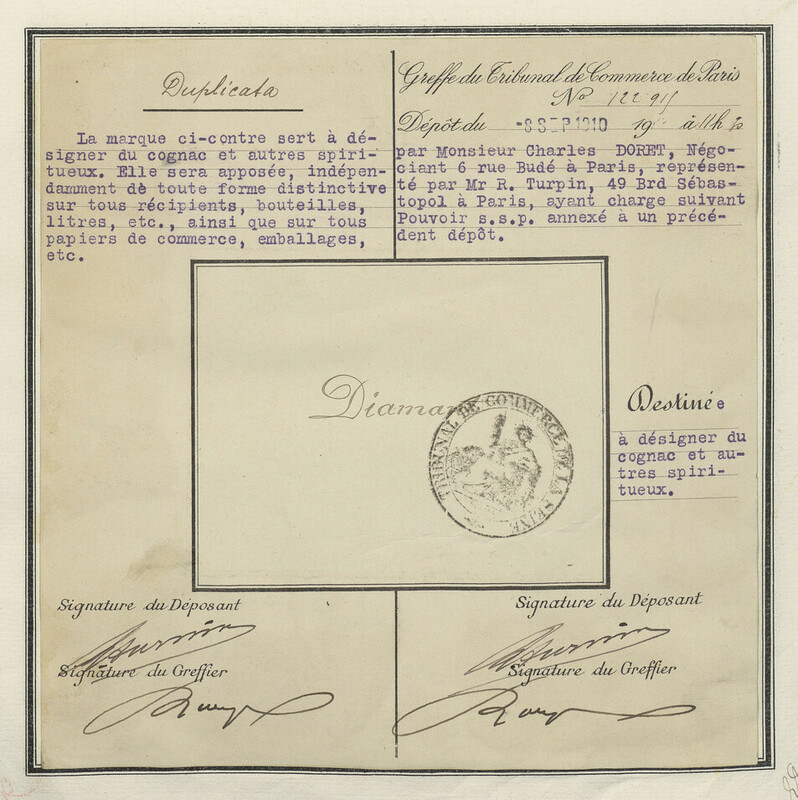 Duplicata
La marque ci-contre sert à dé-
signer du cognac et autres spiri-
tueux. Elle sera apposée, indépen-
damment de toute forme distinctive
sur tous récipients, bouteilles,
litres, etc., ainsi que sur tous
papiers de commerce, emballages,
etc.
Greffe du Tribunal de Commerce de Paris
No
Dépôt du -8 SEP 1910 19 à 11h
par Monsieur Charles DORET, Négo-
ciant 6 rue Budé à Paris, représen-
té par Mr R. Turpin, 49 Brd Sébas-
topol à Paris, ayant charge suivant
Pouvoir s.s.p. annexé à un précé-
dent dépôt.
TRIBUNAL DE COMMERCE DE LA SEINE
Destinée
à désigner du
cognac et au-
tres spiri-
tueux.
Signature du Déposant
Signature du Greffier
Signature du Déposant
Signature du Greffier